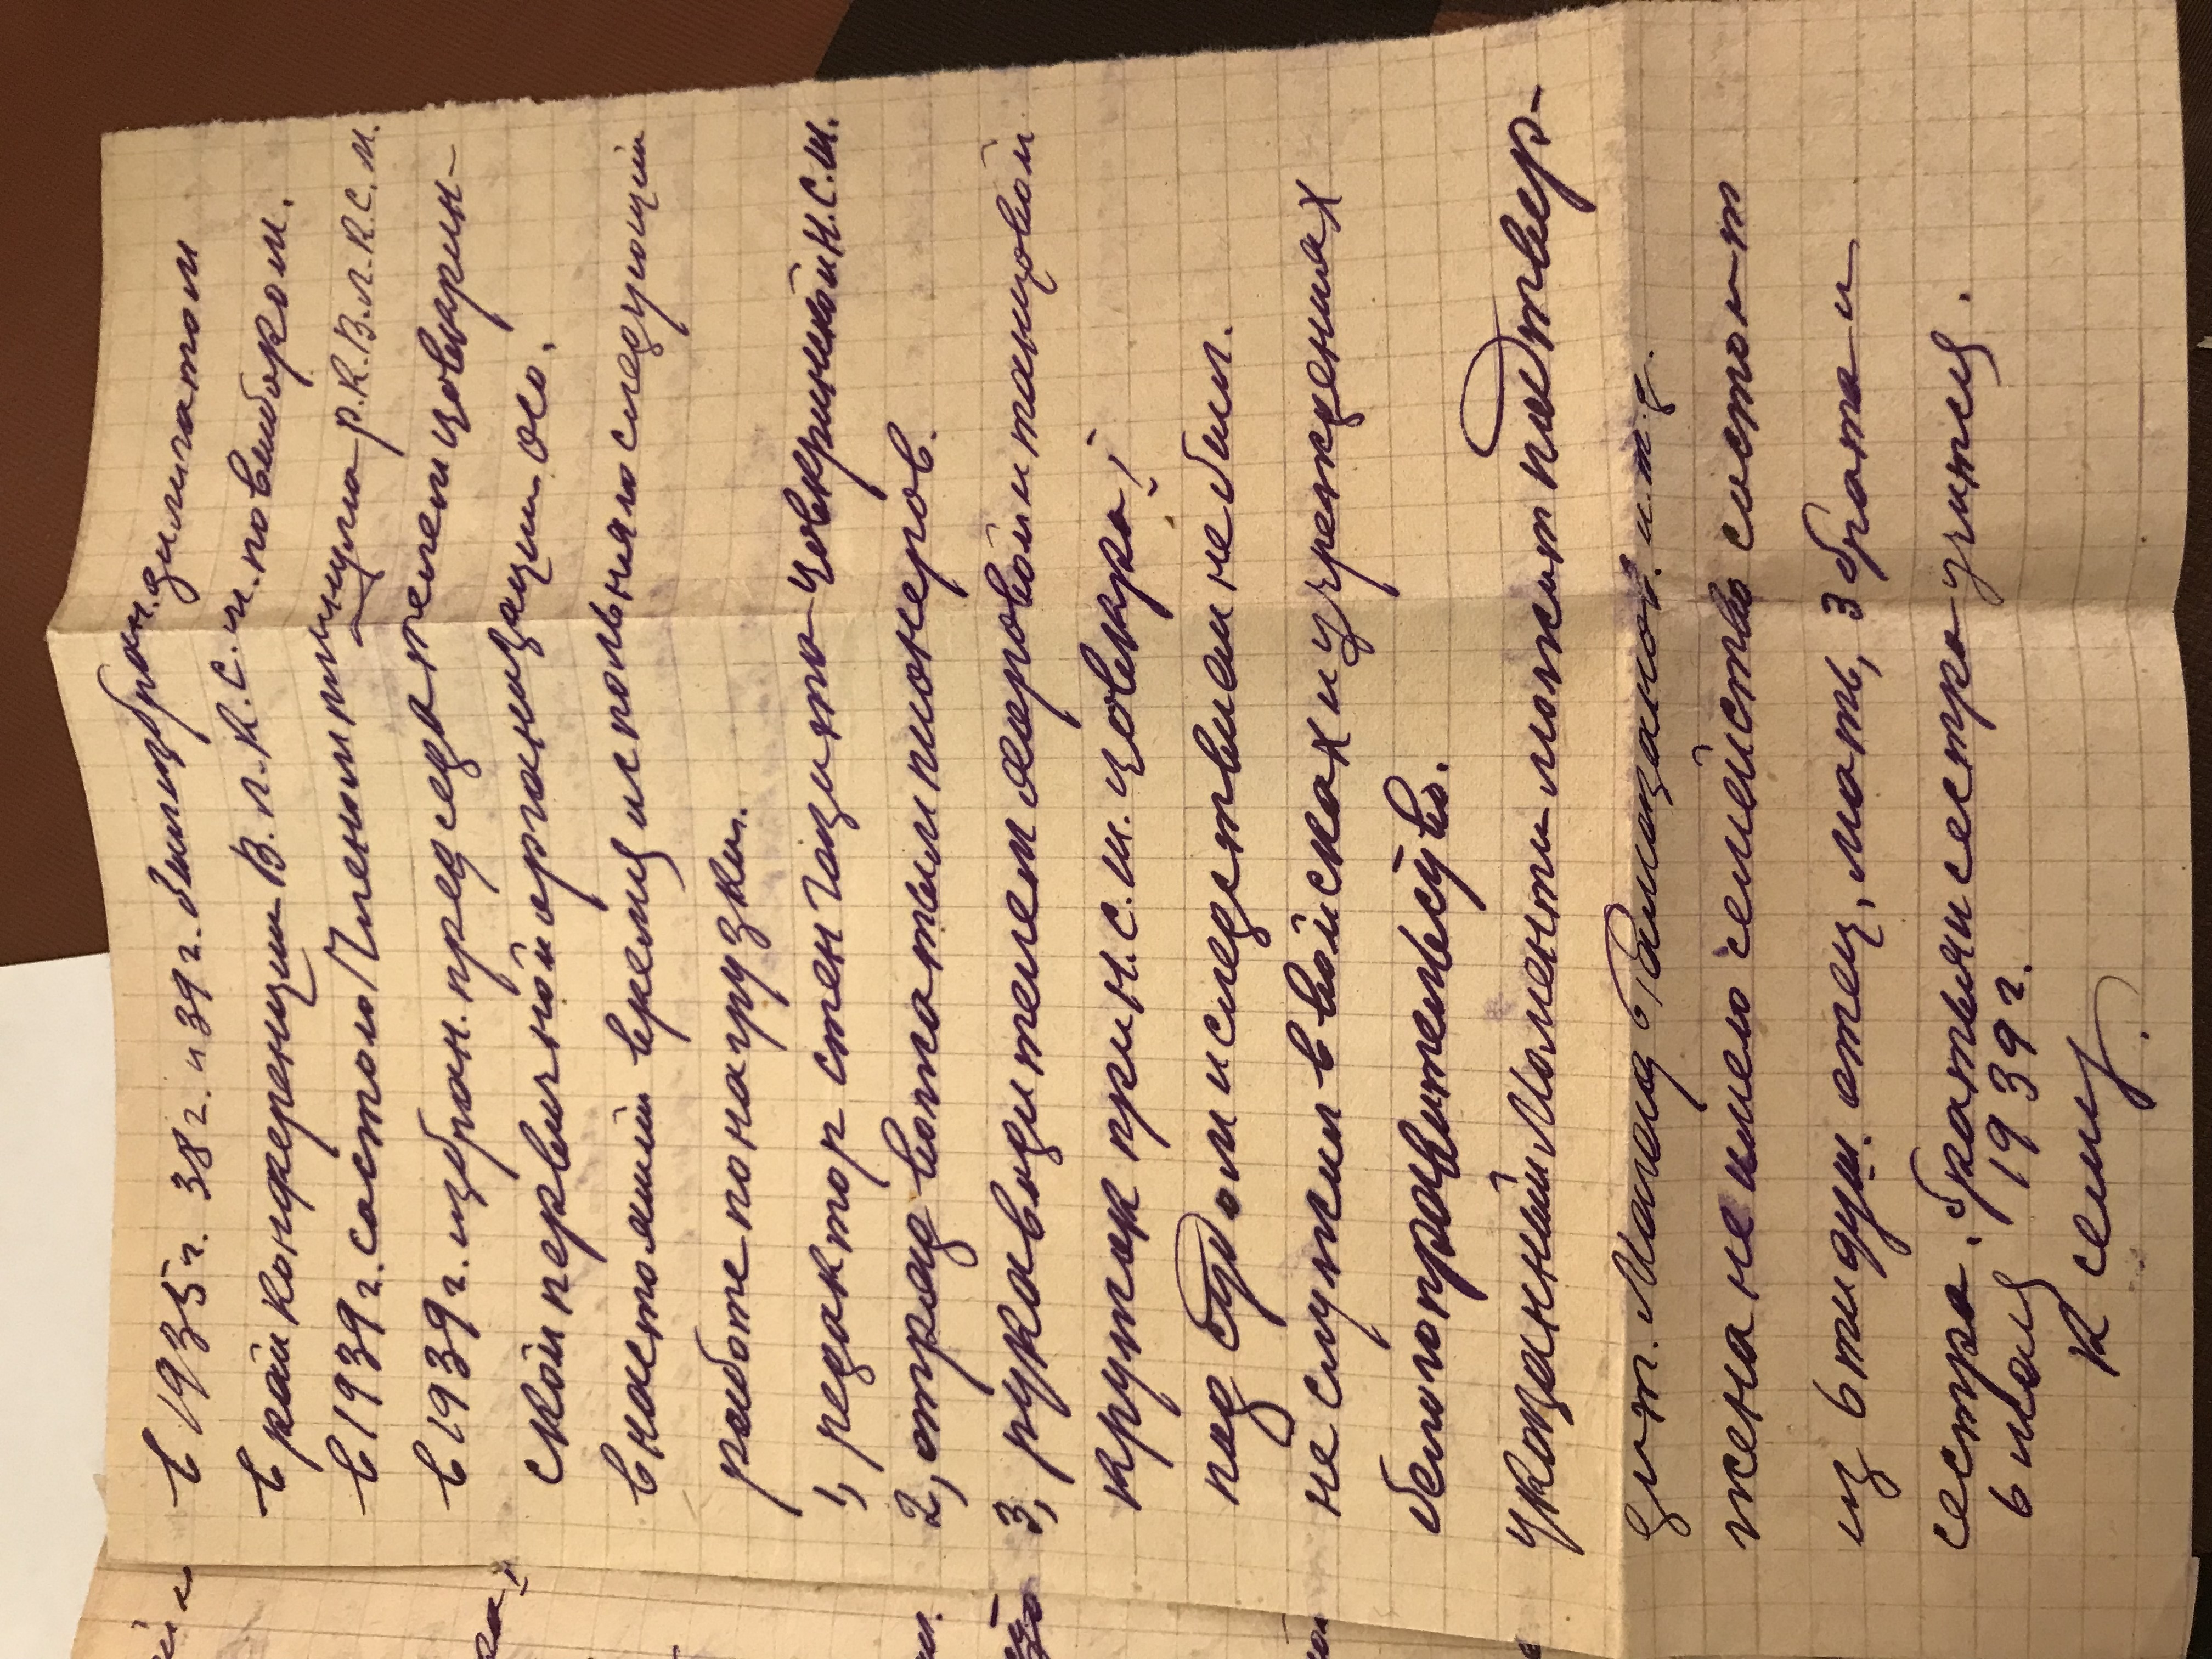 в 1935 г. 38 г. и 39 г. был избран. дилигатом
в рай конференции В.Л.К.С.М. по выборам.
в 1939 г. состою Членом пленума Р.К.В.Л.К.С.М.
в 1939 г. избран. председателем цовкрин-
ской первичной организации осо.
в настоящий время исполняю следующий
работе по нагрузки.
1, редактор стен газита цовкринкой Н.С.Ш.
2, отряд вожатым пионеров.
3, руководителем хоровой и танцовой
кружок при Н.С.Ш. цовкра!
под судом и следствием не был.
не служил в войсках и учреждениях
белоправительству.
указанный Моменты может подтвер-
дит. Магомед
жена не имею семейство состоит
из 6 ти душ. отец, мать, 3 брата и
сестра. братья и сестра учится.
6 мая 1939 г.
К сему